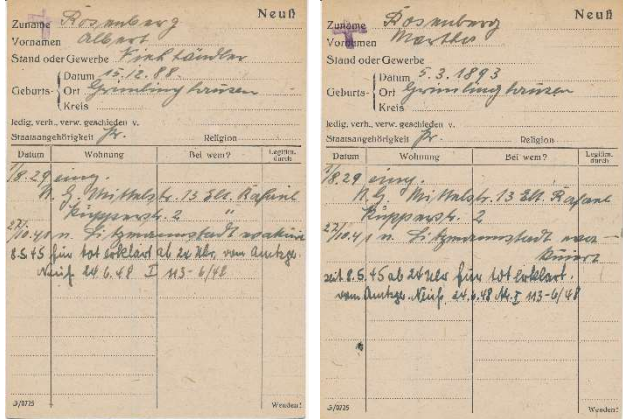 Neuß
Zuname Rosenberg
Vornamen Albert
Stand oder Gewerbe Viehhändler
Datum 15.12.88.
Geburts- Ort Grimlinghausen
Kreis
ledig, verh., verw. geschieden v.
Staatsangehörigkeit Pr. Religion
Datum Wohnung Bei wem? Legitim. durch
1/8.29 eing.
N.G. Mittelstr. 13 Elt. Rafael
Küpperstr. 2 "
27/10.41 n. Litzmannstadt evakuiert
8.5.45 für tot erklärt ab 24 Uhr, vom Amtsg.
Neuß 24.6.48 I 113-6/48
5/0725 Wenden!
Neuß
Zuname Rosenberg
Vornamen Martha
Stand oder Gewerbe
Datum 5.3.1893
Geburts- Ort Grimlinghausen
Kreis
ledig, verh., verw. geschieden v.
Staatsangehörigkeit Pr. Religion
Datum Wohnung Bei wem? Legitim. durch
1/8.29 eing.
N.G. Mittelstr. 13 Elt. Rafael
Küpperstr. 2
27/10.41 n. Litzmannstadt eva-
kuiert
seit 8.5.45 ab 24 Uhr für tot erklärt.
vom Amtsg. Neuß, 24.6.48 Nr. I 113-6/48
5/0725 Wenden!